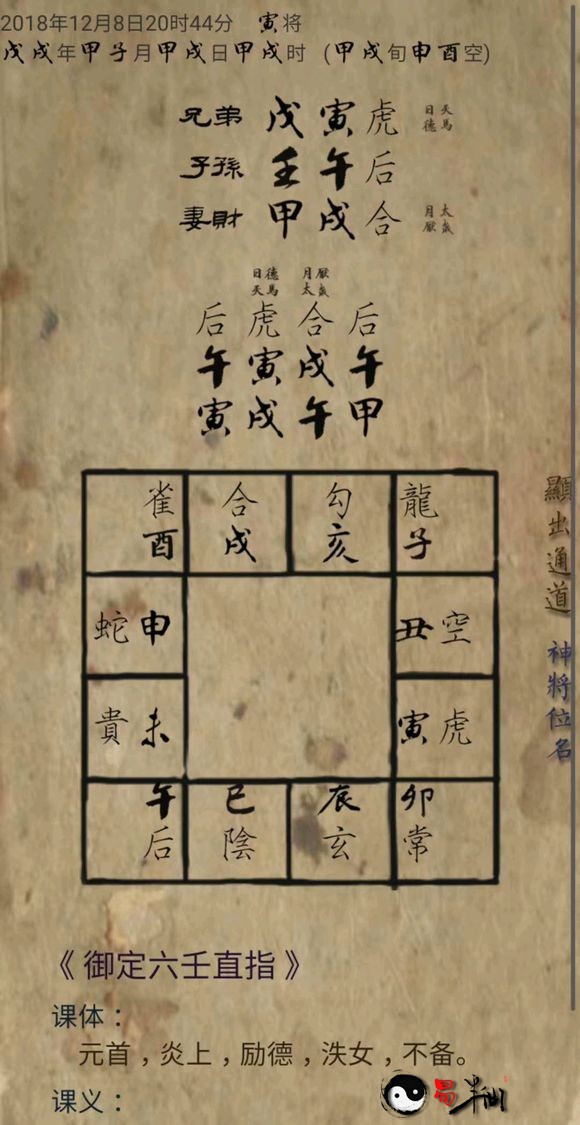 2018年12月8日20时44分 寅将
戊戌年甲子月甲戌日甲戌时 (甲戌旬申酉空)
兄弟 戊寅虎 日德 天馬
子孫 壬午后
妻財 甲戌合 月厭 太歲
日德 月厭
天馬 太歲
后虎合后
午寅戌午
寅戌午甲
雀 合 勾 龍
酉 戌 亥 子
蛇申 丑空
貴未 寅虎
午 巳 辰 卯
后 陰 玄 常
顯出通道 神將位名
《御定六壬直指》
课体：
元首，炎上，励德，泆女，不备。
课义：
易半仙